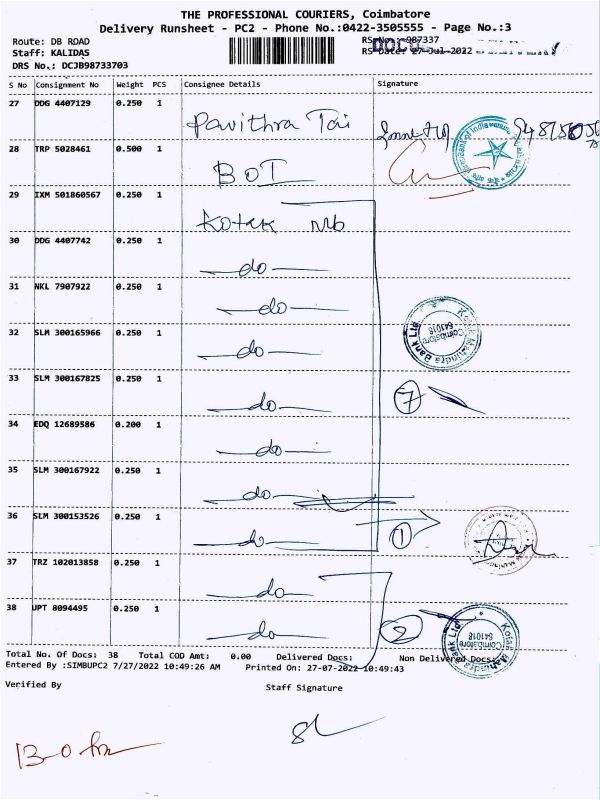 THE PROFESSIONAL COURIERS, Coimbatore
Delivery Runsheet - PC2 - Phone No.:0422-3505555 - Page No.:3
Route: DB ROAD
RS No.: 987337
Staff: KALIDAS
RS Date: 27-Jul-2022
DRS No.: DCJB98733703
S No Consignment No Weight PCS Consignee Details Signature
27 DDG 4407129 0.250 1 Pavithra Tai
28 TRP 5028461 0.500 1 BOI
29 IXM 501860567 0.250 1 Kotak Mb
30 DDG 4407742 0.250 1 do
31 NKL 7907922 0.250 1 do
32 SLM 300165966 0.250 1 do
Kotak Mahindra Bank Ltd
Coimbatore
641018
33 SLM 300167825 0.250 1 do 7
34 EDQ 12689586 0.200 1 do
35 SLM 300167922 0.250 1 do
36 SLM 300153526 0.250 1 do 1
37 TRZ 102013858 0.250 1 do
38 UPT 8094495 0.250 1 do 2
Kotak Mahindra Bank Ltd
Coimbatore
641018
Total No. Of Docs: 38 Total COD Amt: 0.00 Delivered Docs: Non Delivered Docs:
Entered By :SIMBUPC2 7/27/2022 10:49:26 AM Printed On: 27-07-2022 10:49:43
Verified By Staff Signature